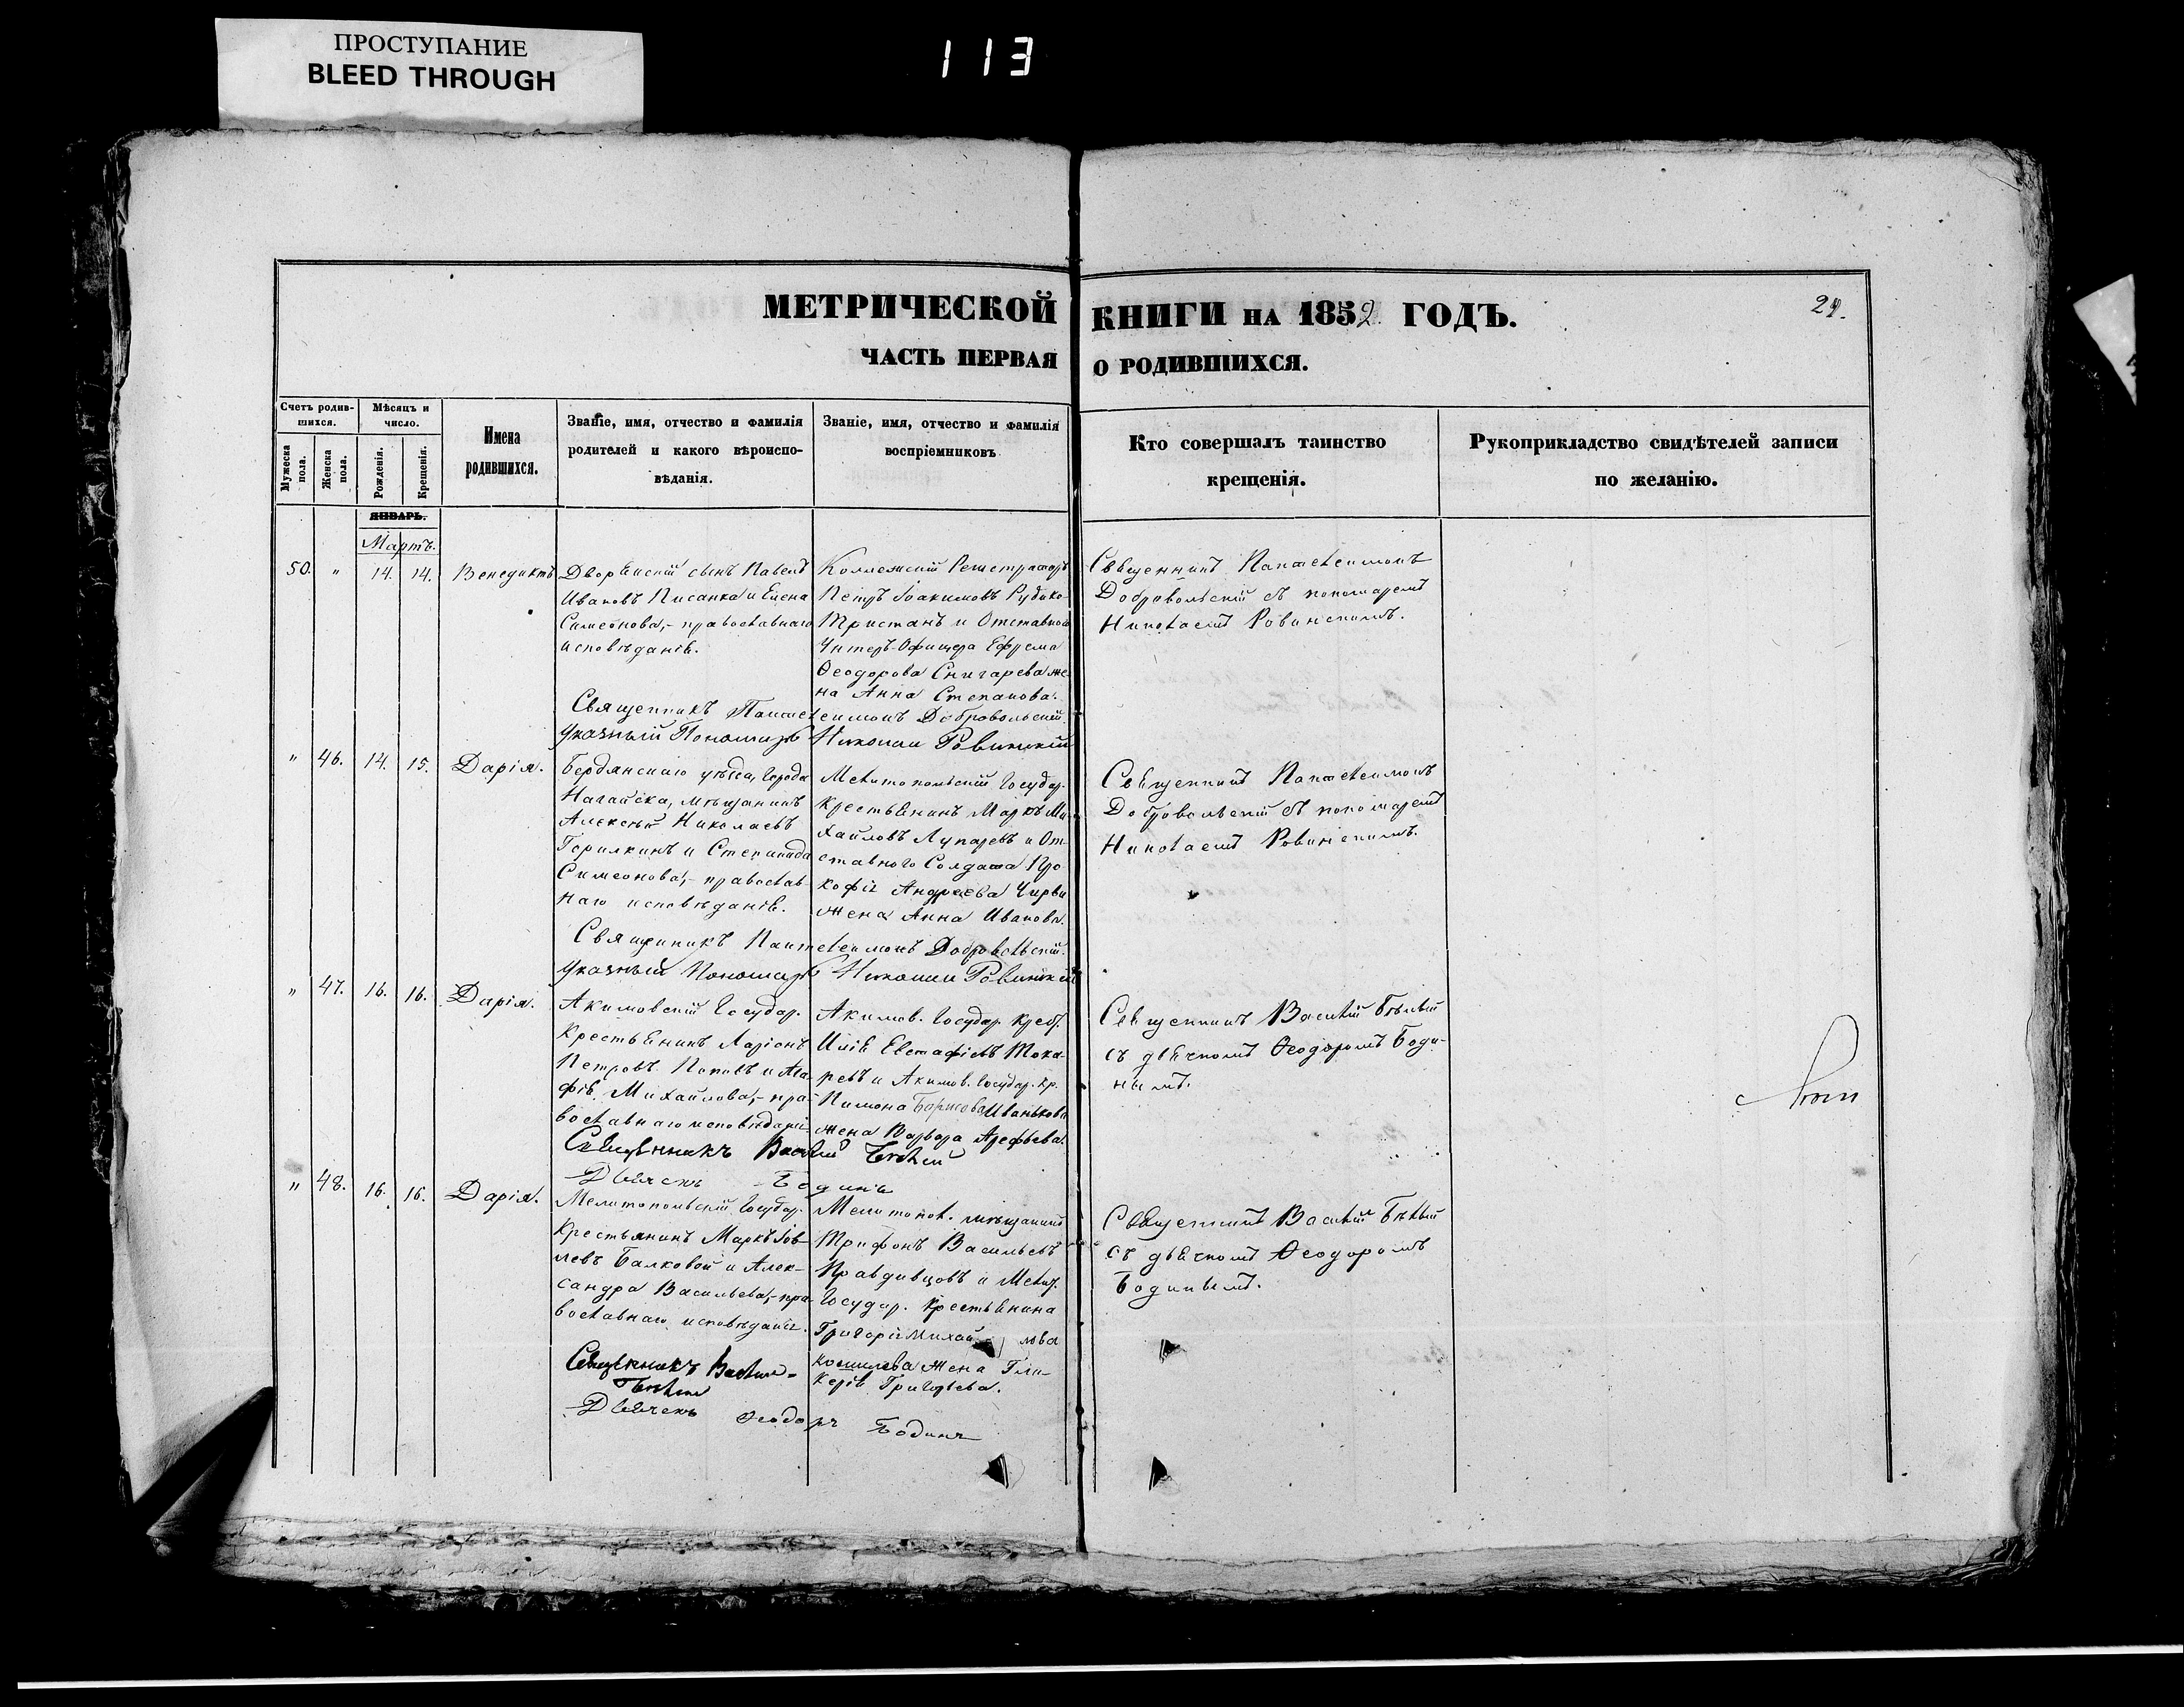 ПРОСТУПАНИЕ
BLEED THROUGH
113
МЕТРИЧЕСКОЙ КНИГИ НА 1852 ГОДЪ.
29.
ЧАСТЬ ПЕРВАЯ О РОДИВШИХСЯ.
Счетъ родив-
шихся.
Мужеска пола.
Женска пола.
Мѣсяцъ и
число.
Рожденія.
Крещенія.
Имена
родившихся.
Званіе, имя, отчество и фамилія
родителей и какого вѣроиспо-
вѣданія.
Званіе, имя, отчество и фамилія
воспріемниковъ
Кто совершалъ таинство
крещенія.
Рукоприкладство свидѣтелей записи
по желанію.
ЯНВАРЬ.
Мартъ.
50. " 14. 14. Венедиктъ
Дворянскій сынъ Павелъ
Ивановъ Писанка и Елена
Симеонова,- православнаго
исповѣданія.
Коллежскій Регистраторъ
Петръ Іоакимовъ Рудико-
Тристанъ и Отставного
Унтеръ-Офицера Ефрема
Ѳеодорова Снигарева же-
на Анна Степанова.
Священникъ Пантелеимонъ
Добровольскій съ пономаремъ
Николаемъ Ровинскимъ.
Священникъ Пантелеимонъ Добровольскій.
Указный Пономарь Николай Ровинскій
" 46. 14. 15. Дарія.
Бердянскаго уѣзда, города
Нагайска, мѣщанинъ
Алексѣй Николаевъ
Горилкинъ и Степанида
Симеонова,- православ-
наго исповѣданія.
Мелитопольскій Государ.
крестьянинъ Маркъ Ми-
хайловъ Лупаревъ и От-
ставного Солдата Про-
кофія Андреева Чирви
жена Анна Иванова.
Священникъ Пантелеимонъ
Добровольскій съ пономаремъ
Николаемъ Ровинскимъ.
Священникъ Пантелеимонъ Добровольскій.
Указный Пономарь Николай Ровинскій
" 47. 16. 16. Дарія.
Акимовскій Государ.
крестьянинъ Ларіонъ
Петровъ Поповъ и Ага-
фія Михайлова,- пра-
вославнаго исповѣдані
Акимов. Государ. крест.
Илія Евстафіевъ Тока-
ревъ и Акимов. Государ. кр.
Пимона Борисова Иванькова
жена Варвара Арефьева.
Священникъ Василій Бѣлый
съ дьячкомъ Ѳеодоромъ Боди-
нымъ.
Священникъ Василій Бѣлый
Дьячекъ Бодинъ
" 48. 16. 16. Дарія.
Мелитопольскій Государ.
крестьянинъ Маркъ Іов-
левъ Балковой и Алек-
сандра Васильева,- пра-
вославнаго исповѣданія.
Мелитопол. мѣщанинъ
Трифонъ Васильевъ
Правдивцовъ и Мелит.
Государ. крестьянина
Григорія Михайлова
Кошилева жена Гли-
керія Григорьева.
Священникъ Василій Бѣлый
съ дьячкомъ Ѳеодоромъ
Бодинымъ.
Священникъ Василій
Бѣлый
Дьячекъ Ѳеодоръ Бодинъ